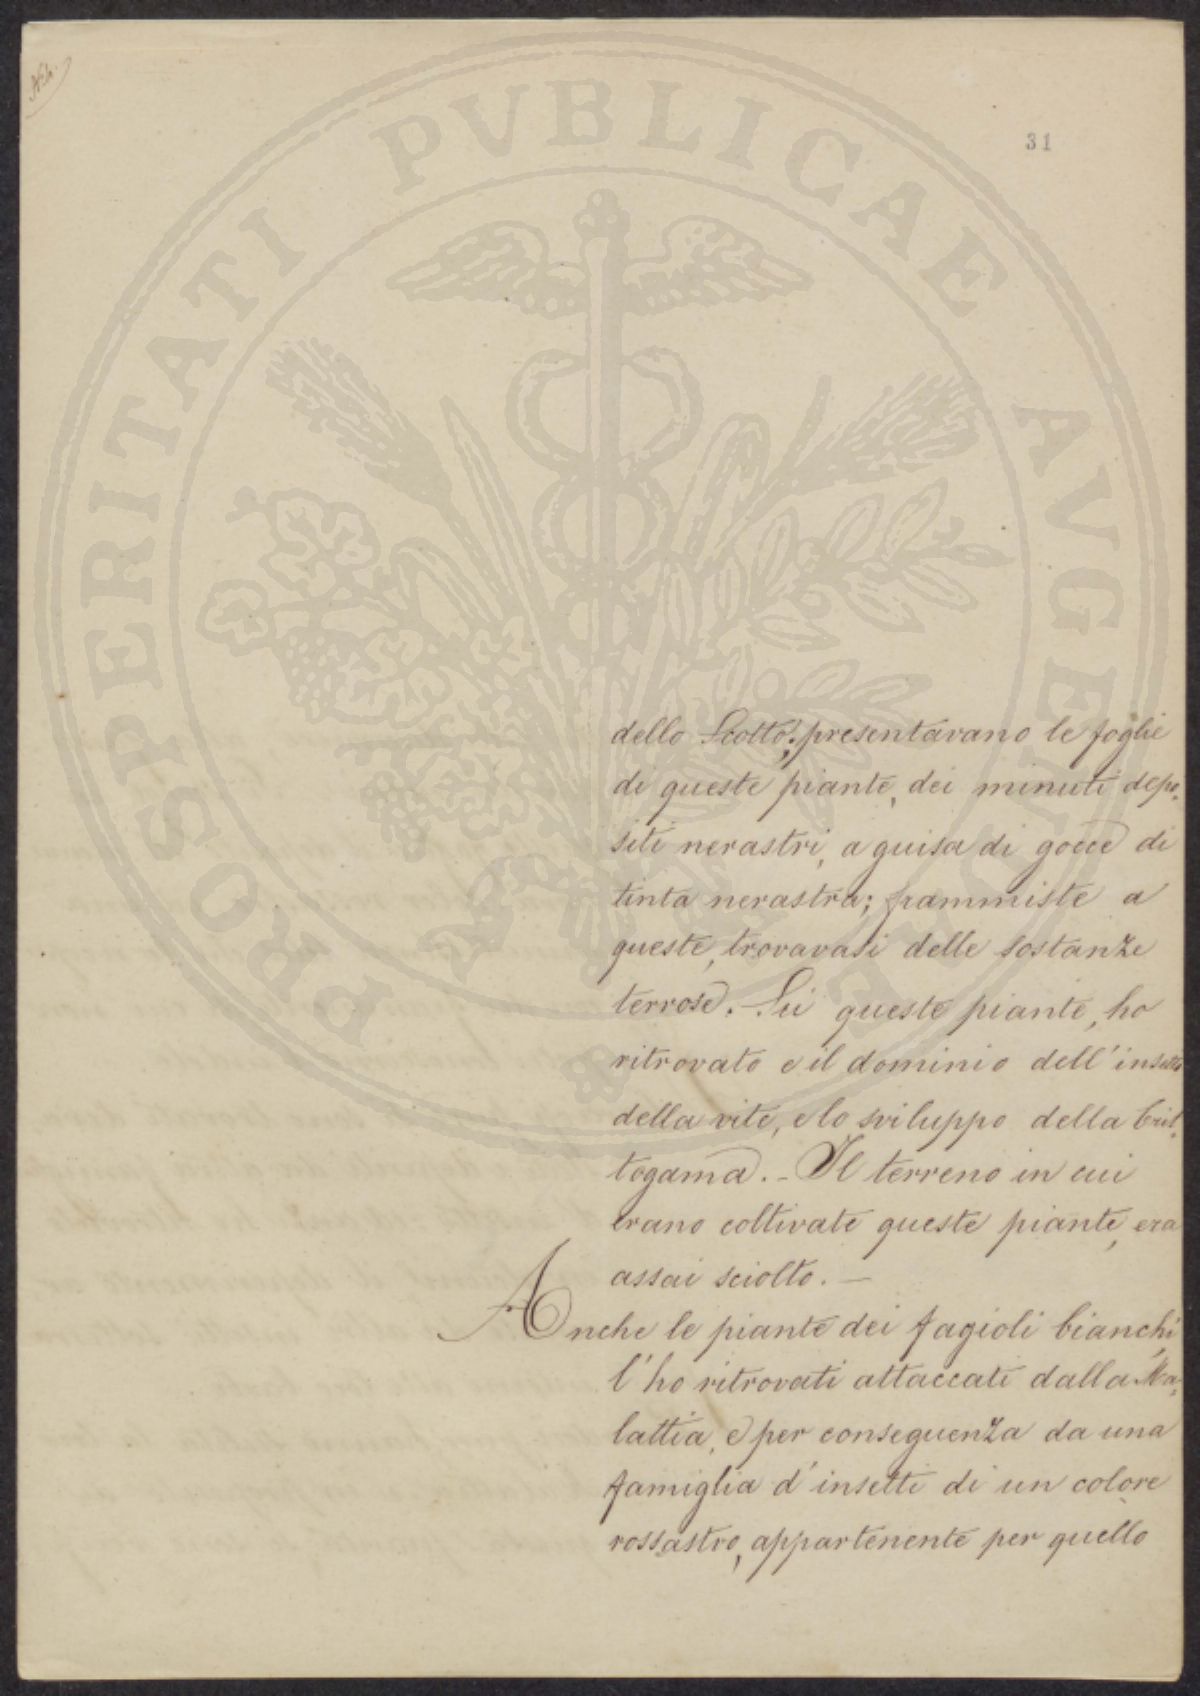 31
PROSPERITATI PVBLICAE AVGENDAE
dello Scotto; presentavano le foglie
di queste piante, dei minuti depo-
siti nerastri, a guisa di gocce di
tinta nerastra; frammiste a
queste, trovavasi delle sostanze
terrose. - Su queste piante, ho
ritrovato e il dominio dell'insetto
della vite, e lo sviluppo della Crit-
togama. - Il terreno in cui
erano coltivate queste piante, era
assai sciolto. —
Anche le piante dei fagioli bianchi,
l'ho ritrovati attaccati dalla Ma-
lattia, e per conseguenza da una
famiglia d'insetti di un colore
rossastro, appartenente per quello